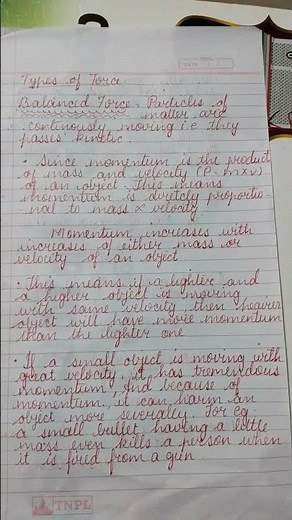 DATE
Types of Force
Balanced Force - Particles of
matter are
continuously moving i.e they
passes kinetic.
• Since momentum is the product
of mass and velocity (P = m×v)
of an object. This means
momentum is directly proportio-
nal to mass × velocity
Momentum increases with
increases of either mass or
velocity of an object
• This means if a lighter and
a higher object is moving
with same velocity, then heavier
object will have more momentum
than the lighter one
• If a small object is moving with
great velocity, it has tremendous
momentum. And because of
momentum, it can harm an
object more severally. For eg -
a small bullet, having a little
mass even kills a person when
it is fired from a gun.
TNPL